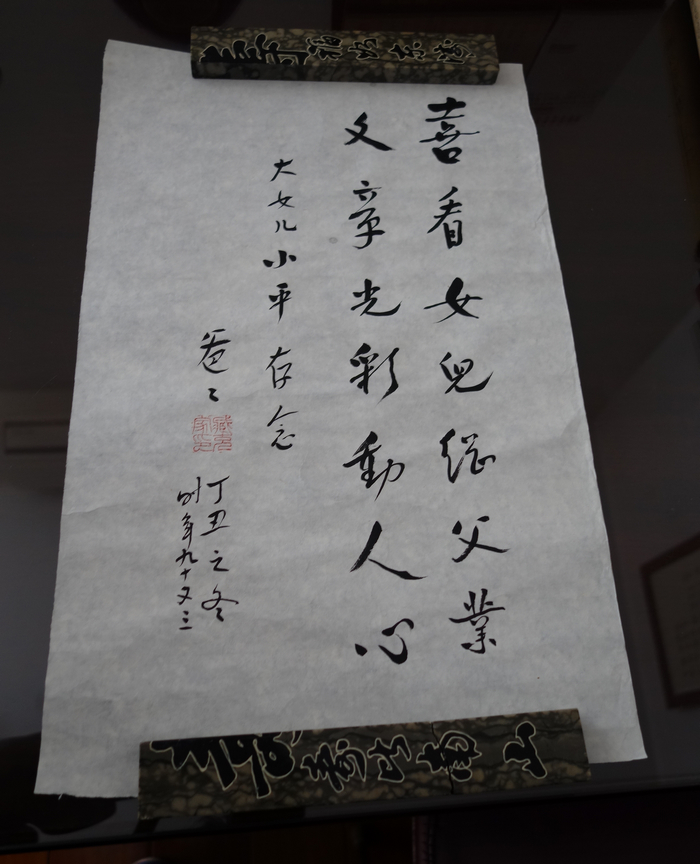 喜看女兒继父業
文章光彩動人心
大女儿小平存念
爸〻
丁丑之冬
时年九十又三
壽
南山